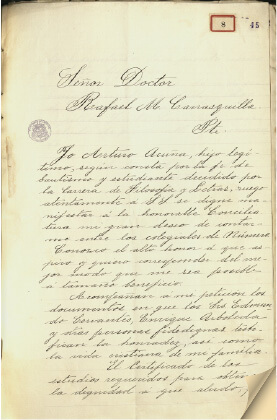 8
45
Señor Doctor
Rafael M. Carrasquilla
Pte.
Yo Arturo Acuña, hijo legí-
timo, según consta por la fe de
bautismo y estudiante decidido por
la carrera de Filosofía y Letras, ruego
atentamente á SS se digne ma-
nifestar á la honorable Consilia-
tura mi gran deseo de contar-
me entre los colegiales
Conozco el alto honor á que as-
piro y quiero corresponder del me-
jor modo que me sea posible
á tamaño beneficio.
Acompañan á me petición los
documentos en que los Srs Edmun-
do Cervantes, Enrique Arboleda
y dias personas fidedignas testi-
fican la honradez, así como
la vida cristiana de mi familia.
El Certificado de los
estudios requeridos para obtener
la dignidad á que aludo,